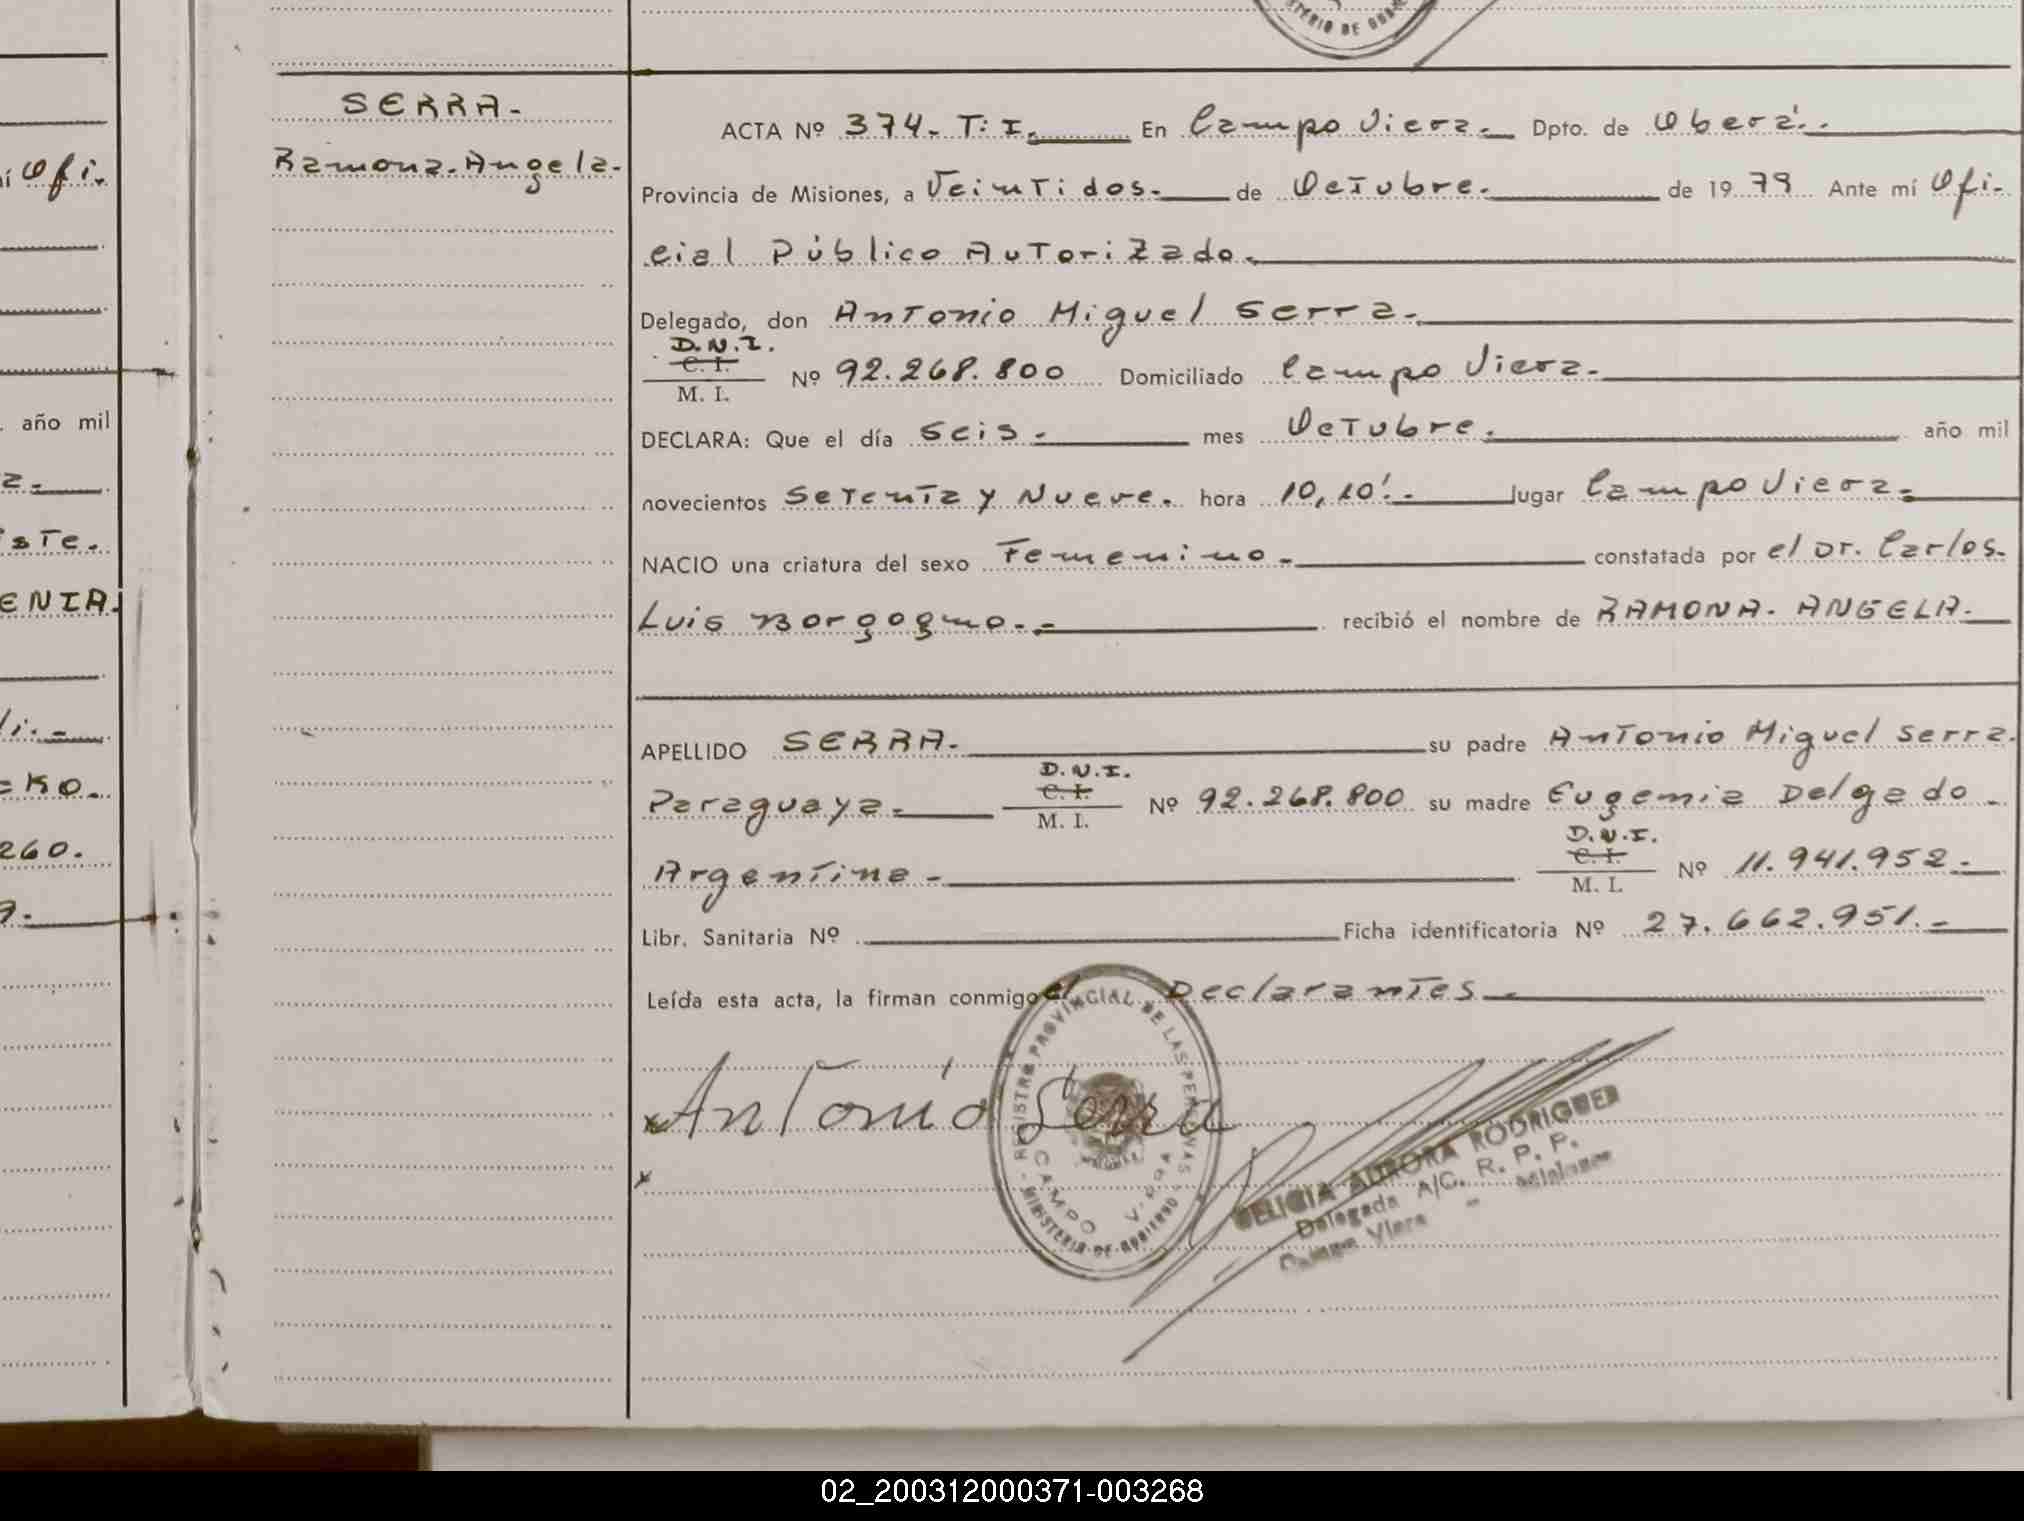 TERIO DE GOB
SERRA.-
Ramona.Angela.-
ACTA Nº 374. T: I. En Campo Viera.- Dpto. de Oberá.-
Provincia de Misiones, a Veintidos.- de Octubre.- de 1979 Ante mí Ofi-
cial Público Autorizado.-
Delegado, don Antonio Miguel Serra.-
D.N.I.
C. I.
M. I.
Nº 92.268.800 Domiciliado Campo Viera.-
DECLARA: Que el día seis.- mes Octubre.- año mil
novecientos Setenta y Nueve. hora 10,10'.- lugar Campo Viera.-
NACIO una criatura del sexo Femenino.- constatada por el Dr. Carlos.
Luis Borgogno.- recibió el nombre de RAMONA. ANGELA.
APELLIDO SERRA.- su padre Antonio Miguel Serra.
Paraguaya.- D.N.I. C. I. M. I. Nº 92.268.800 su madre Eugenia Delgado.-
Argentina.- D.N.I. C. I. M. I. Nº 11.941.952.-
Libr. Sanitaria Nº Ficha identificatoria Nº 27.662.951.-
Leída esta acta, la firman conmigo el Declarantes.-
REGISTRO PROVINCIAL DE LAS PERSONAS
MINISTERIO DE GOBIERNO
CAMPO V.
x Antonio Serra
x
AURORA RODRIGUEZ
Delegada A/C. R. P. P.
Campo Viera - Misiones
í Ofi.
año mil
a.-
iste.
ENIA.
li.-
cko.
260.
9.-
02_200312000371-003268